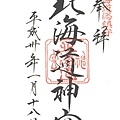 奉拝
北海道神宮
平成卅年一月十八日